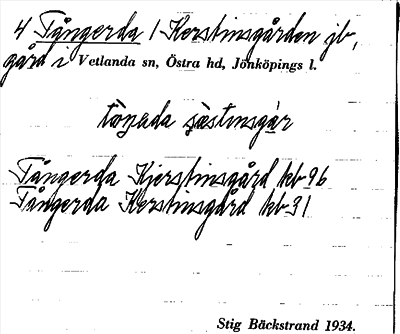 4 Tångerda 1 Kerstinsgården jb,
gård i Vetlanda sn, Östra hd, Jönköpings l.
tòŋada ʂæstinsgàr
Tångerda Kjerstinsgård hb 96
Tångerda Kerstinsgård hb 31
Stig Bäckstrand 1934.